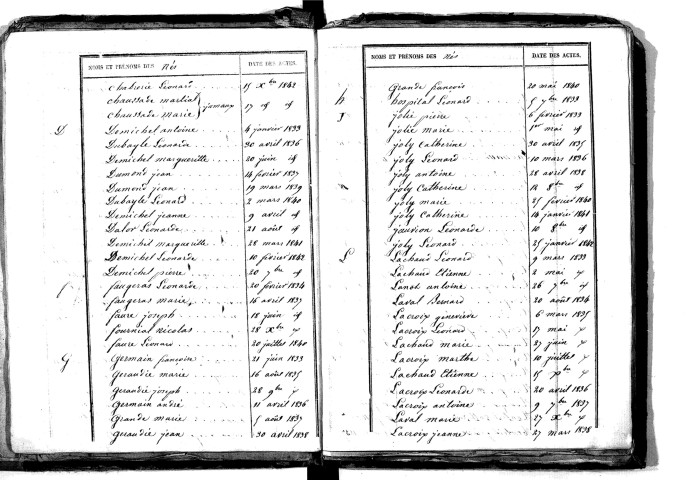 NOMS ET PRÉNOMS DES Nés DATE DES ACTES.
Chabrerie Léonard 15 Xbre 1842
Chaussade martial
jumeaux 17 id id
Chaussade marie
D Demichel antoine 4 janvier 1833
Dubayle Léonard 30 avril 1836
Demichel marguerithe 20 juin id
Dumond jean 14 février 1837
Dumond jean 19 mars 1839
Dubayle Léonard 2 mars 1840
Demichel jeanne 9 avril id
Dalor Léonarde 21 août id
Demichel marguerithe 28 mars 1841
Demichel Léonarde 10 février 1842
Demichel pierre 20 7bre id
f faugeras Léonarde 20 février 1834
faugeras marie 16 avril 1837
faure joseph 18 juin id
fournial nicolas 28 Xbre id
faure Léonard 20 juillet 1840
G Germain françoise 21 juin 1833
Geraudie marie 16 août 1835
Geraudie joseph 28 9bre id
Germain andré 11 avril 1836
Grande marie 5 août 1837
Geraudie jean 30 avril 1838
NOMS ET PRÉNOMS DES Nés DATE DES ACTES.
Grande françois 20 mai 1840
h hospital Léonard 5 7bre 1833
J jolie pierre 6 février 1833
jolie marie 1er mai id
joly Catherine 30 avril 1835
joly Léonard 10 mars 1836
joly antoine 28 avril 1838
joly Catherine 14 8bre id
joly marie 25 février 1840
joly Catherine 14 janvier 1841
jauvion Léonarde 10 8bre id
joly Léonard 25 janvier 1842
L Lachaud Léonard 9 mars 1833
Lachaud Etienne 2 mai id
Lanot antoine 26 7bre id
Laval Bernard 20 août 1834
Lacroix geneviève 6 mars 1835
Lacroix Léonard 17 mai id
Lachaud marie 27 juin id
Lacroix marthe 10 juillet id
Lachaud Etienne 15 Xbre id
Lacroix Léonarde 20 avril 1836
Lacroix antoine 9 7bre 1837
Laval marie 27 Xbre id
Lacroix jeanne 27 mars 1838